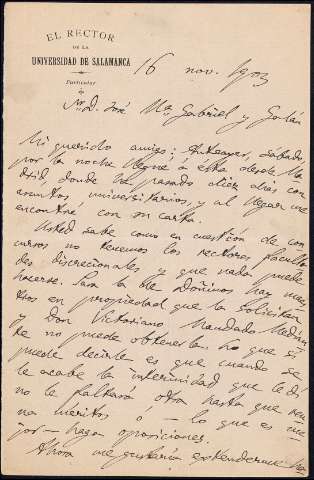 EL RECTOR
DE LA
UNIVERSIDAD DE SALAMANCA
Particular
16 nov. 1903
Sr. D. José Mª Gabriel y Galán
Mi querido amigo: Anteayer, sábado,
por la noche llegué á ésta desde Ma
drid donde he pasado diez días con
asuntos universitarios, y al llegar me
encontré con su carta.
Usted sabe como en cuestión de con
cursos no tenemos los rectores faculta
des discrecionales y que nada puede
hacerse. Para la de Doñinos hay maes
tros en propiedad que la solicitan
y Don Victoriano Mandado
te no puede obtenerla. Lo que sí
puede decirle es que cuando se
le acabe la interinidad que le dí
no le faltará otra hasta que reu
na méritos ó — lo que es me
jor — haga oposiciones.
Ahora me gustaría extenderme